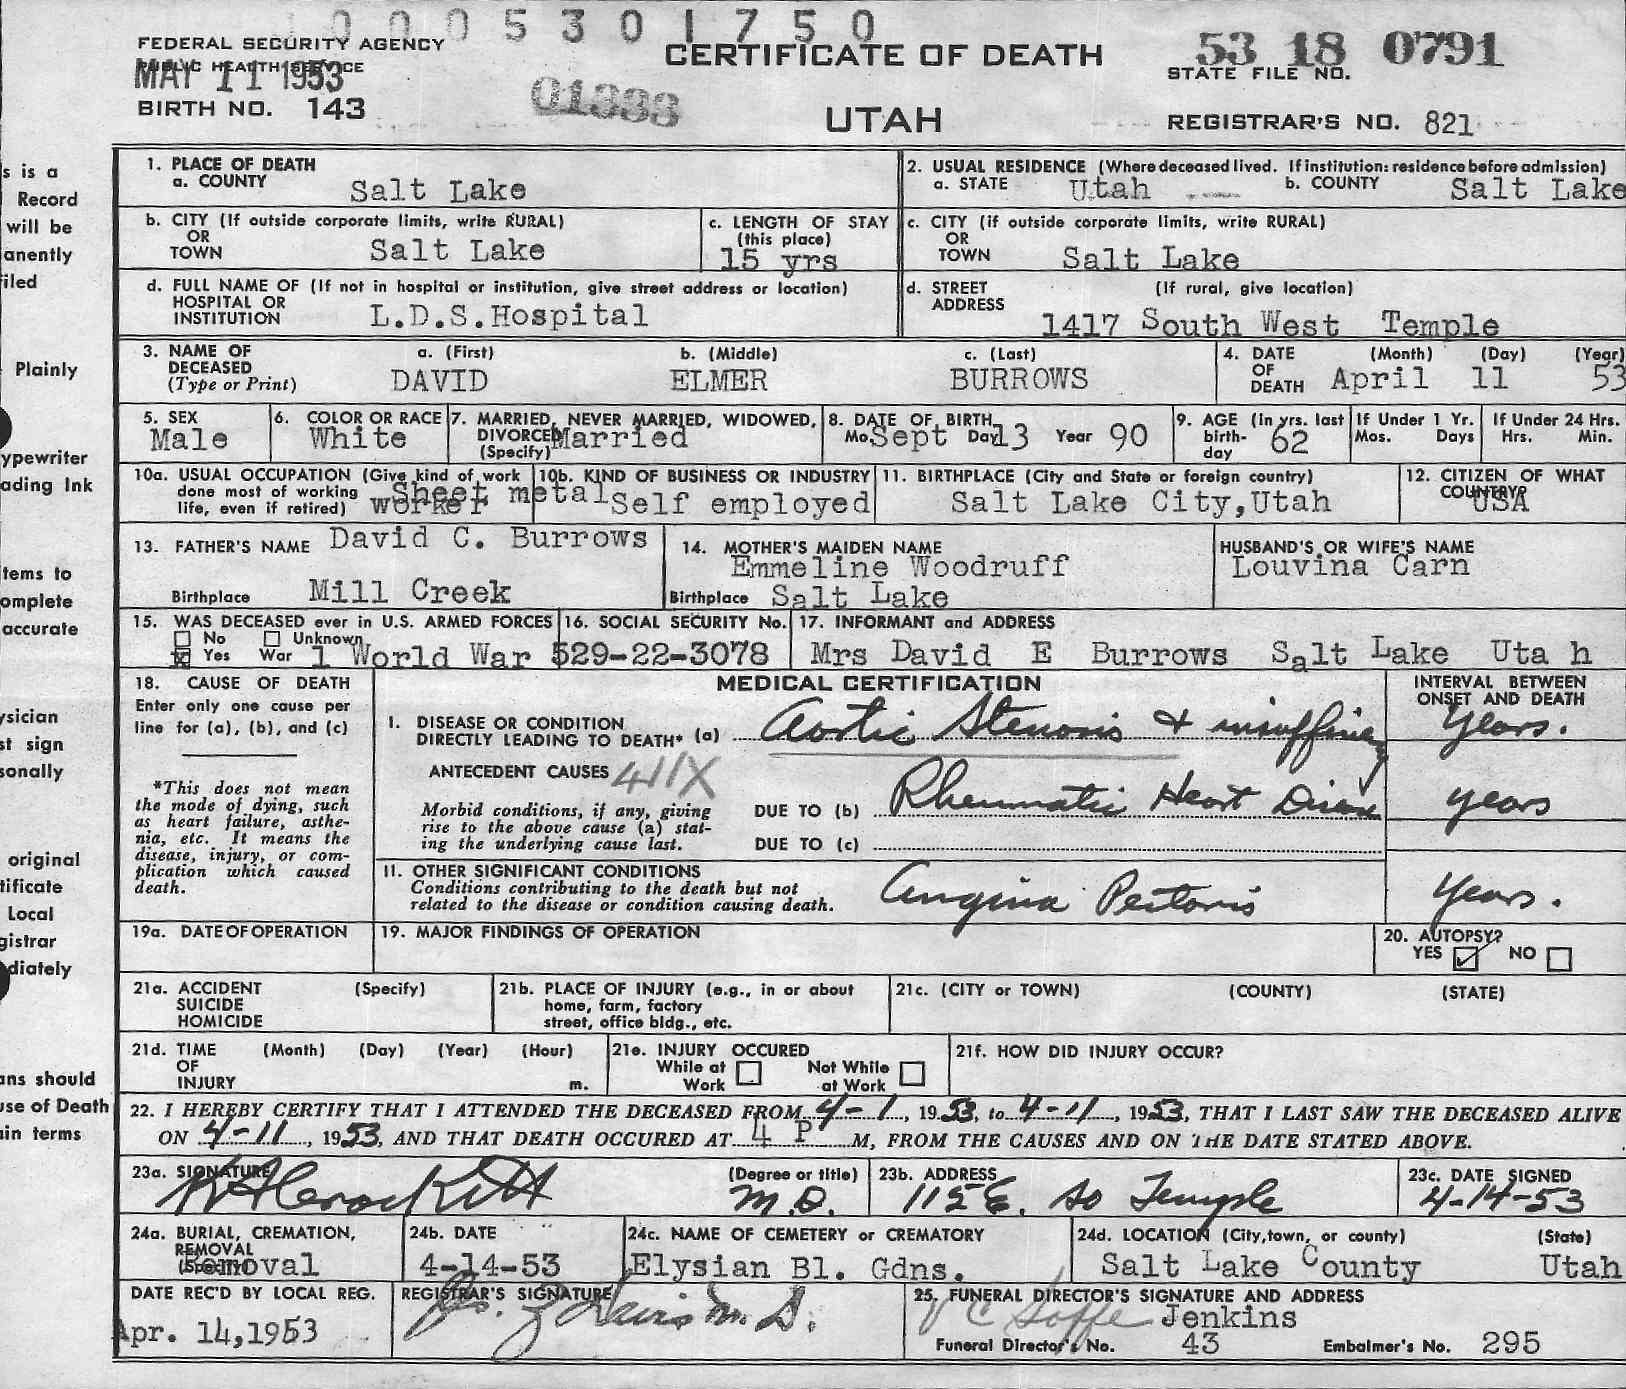 0005301750
FEDERAL SECURITY AGENCY
PUBLIC HEALTH SERVICE
MAY 11 1953
BIRTH NO. 143
01333
CERTIFICATE OF DEATH
UTAH
53 18 0791
STATE FILE NO.
REGISTRAR'S NO. 821
s is a
Record
will be
anently
iled
Plainly
ypewriter
ading Ink
tems to
omplete
accurate
ysician
st sign
sonally
original
tificate
Local
gistrar
diately
ans should
use of Death
ain terms
1. PLACE OF DEATH
a. COUNTY Salt Lake
2. USUAL RESIDENCE (Where deceased lived. If institution: residence before admission)
a. STATE Utah b. COUNTY Salt Lake
b. CITY (If outside corporate limits, write RURAL)
OR
TOWN Salt Lake
c. LENGTH OF STAY
(this place)
15 yrs
c. CITY (if outside corporate limits, write RURAL)
OR
TOWN Salt Lake
d. FULL NAME OF (If not in hospital or institution, give street address or location)
HOSPITAL OR
INSTITUTION L.D.S.Hospital
d. STREET (If rural, give location)
ADDRESS
1417 South West Temple
3. NAME OF DECEASED
(Type or Print)
a. (First) b. (Middle) c. (Last)
DAVID ELMER BURROWS
4. DATE OF DEATH (Month) (Day) (Year)
April 11 53
5. SEX
Male
6. COLOR OR RACE
White
7. MARRIED, NEVER MARRIED, WIDOWED,
DIVORCED (Specify) Married
8. DATE OF BIRTH
Mo. Sept Day 13 Year 90
9. AGE (In yrs. last birthday
62
If Under 1 Yr.
Mos. Days
If Under 24 Hrs.
Hrs. Min.
10a. USUAL OCCUPATION (Give kind of work
done most of working
life, even if retired)
Sheet metal
worker
10b. KIND OF BUSINESS OR INDUSTRY
Self employed
11. BIRTHPLACE (City and State or foreign country)
Salt Lake City,Utah
12. CITIZEN OF WHAT
COUNTRY?
USA
13. FATHER'S NAME David C. Burrows
Birthplace Mill Creek
14. MOTHER'S MAIDEN NAME
Emmeline Woodruff
Birthplace Salt Lake
HUSBAND'S OR WIFE'S NAME
Louvina Carn
15. WAS DECEASED ever in U.S. ARMED FORCES
No Unknown
Yes War 1 World War
16. SOCIAL SECURITY No.
529-22-3078
17. INFORMANT and ADDRESS
Mrs David E Burrows Salt Lake Uta h
18. CAUSE OF DEATH
Enter only one cause per
line for (a), (b), and (c)
*This does not mean
the mode of dying, such
as heart failure, asthe-
nia, etc. It means the
disease, injury, or com-
plication which caused
death.
MEDICAL CERTIFICATION
INTERVAL BETWEEN
ONSET AND DEATH
I. DISEASE OR CONDITION
DIRECTLY LEADING TO DEATH* (a) Aortic Stenosis & insufficiency Years.
ANTECEDENT CAUSES 411X
Morbid conditions, if any, giving
rise to the above cause (a) stat-
ing the underlying cause last.
DUE TO (b) Rheumatic Heart Disease years
DUE TO (c)
II. OTHER SIGNIFICANT CONDITIONS
Conditions contributing to the death but not
related to the disease or condition causing death.
Angina Pectoris Years.
19a. DATE OF OPERATION
19. MAJOR FINDINGS OF OPERATION
20. AUTOPSY?
YES NO
21a. ACCIDENT (Specify)
SUICIDE
HOMICIDE
21b. PLACE OF INJURY (e.g., in or about
home, farm, factory
street, office bldg., etc.
21c. (CITY or TOWN) (COUNTY) (STATE)
21d. TIME (Month) (Day) (Year) (Hour)
OF
INJURY m.
21e. INJURY OCCURED
While at Work
Not While at Work
21f. HOW DID INJURY OCCUR?
22. I HEREBY CERTIFY THAT I ATTENDED THE DECEASED FROM 4-1, 1953, to 4-11, 1953, THAT I LAST SAW THE DECEASED ALIVE
ON 4-11, 1953, AND THAT DEATH OCCURED AT 4 P M, FROM THE CAUSES AND ON THE DATE STATED ABOVE.
23a. SIGNATURE (Degree or title)
Crockett M.D.
23b. ADDRESS
115 E. So Temple
23c. DATE SIGNED
4-14-53
24a. BURIAL, CREMATION,
REMOVAL
(Specify)
Removal
24b. DATE
4-14-53
24c. NAME OF CEMETERY or CREMATORY
Elysian Bl. Gdns.
24d. LOCATION (City,town, or county) (State)
Salt Lake County Utah
DATE REC'D BY LOCAL REG.
Apr. 14,1953
REGISTRAR'S SIGNATURE
M.D.
25. FUNERAL DIRECTOR'S SIGNATURE AND ADDRESS
Jenkins
Funeral Director's No. 43 Embalmer's No. 295